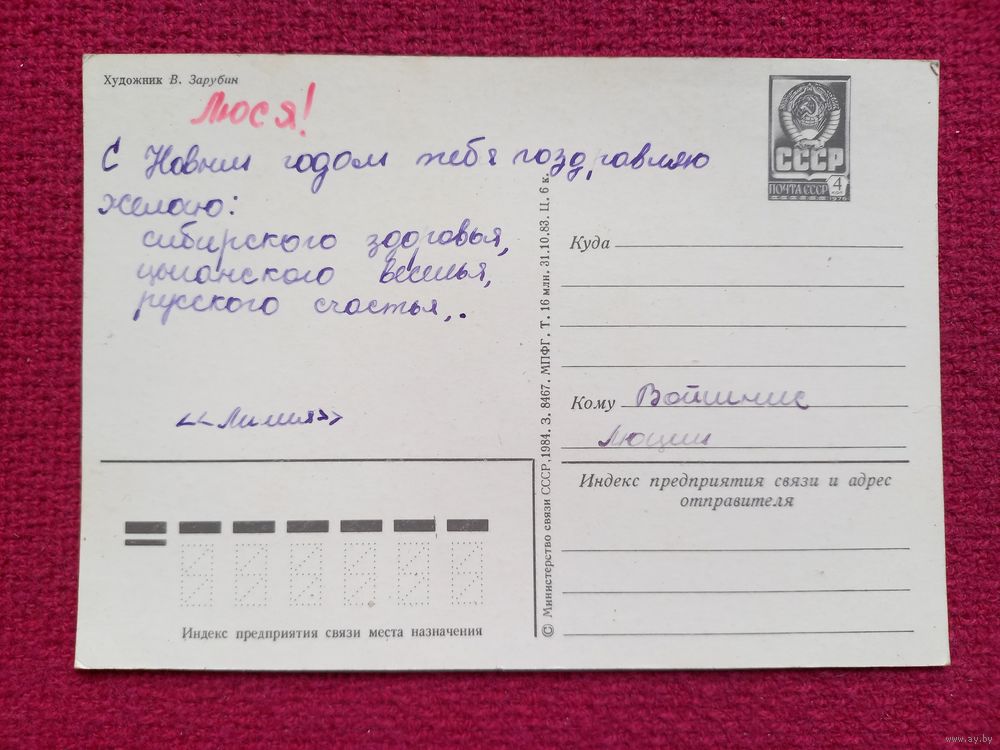 Художник В. Зарубин
Люся!
С Новым годом тебя поздравляю
желаю:
сибирского здоровья,
цыганского веселья,
русского счастья,.
<<Лилия>>
СССР
ПОЧТА СССР
4
КОП
1976
Куда
Кому Войтинис
Люции
Индекс предприятия связи и адрес
отправителя
Индекс предприятия связи места назначения
© Министерство связи СССР, 1984. З. 8467. МПФГ. Т. 16 млн. 31.10.83. Ц. 6 к.
www.ay.by